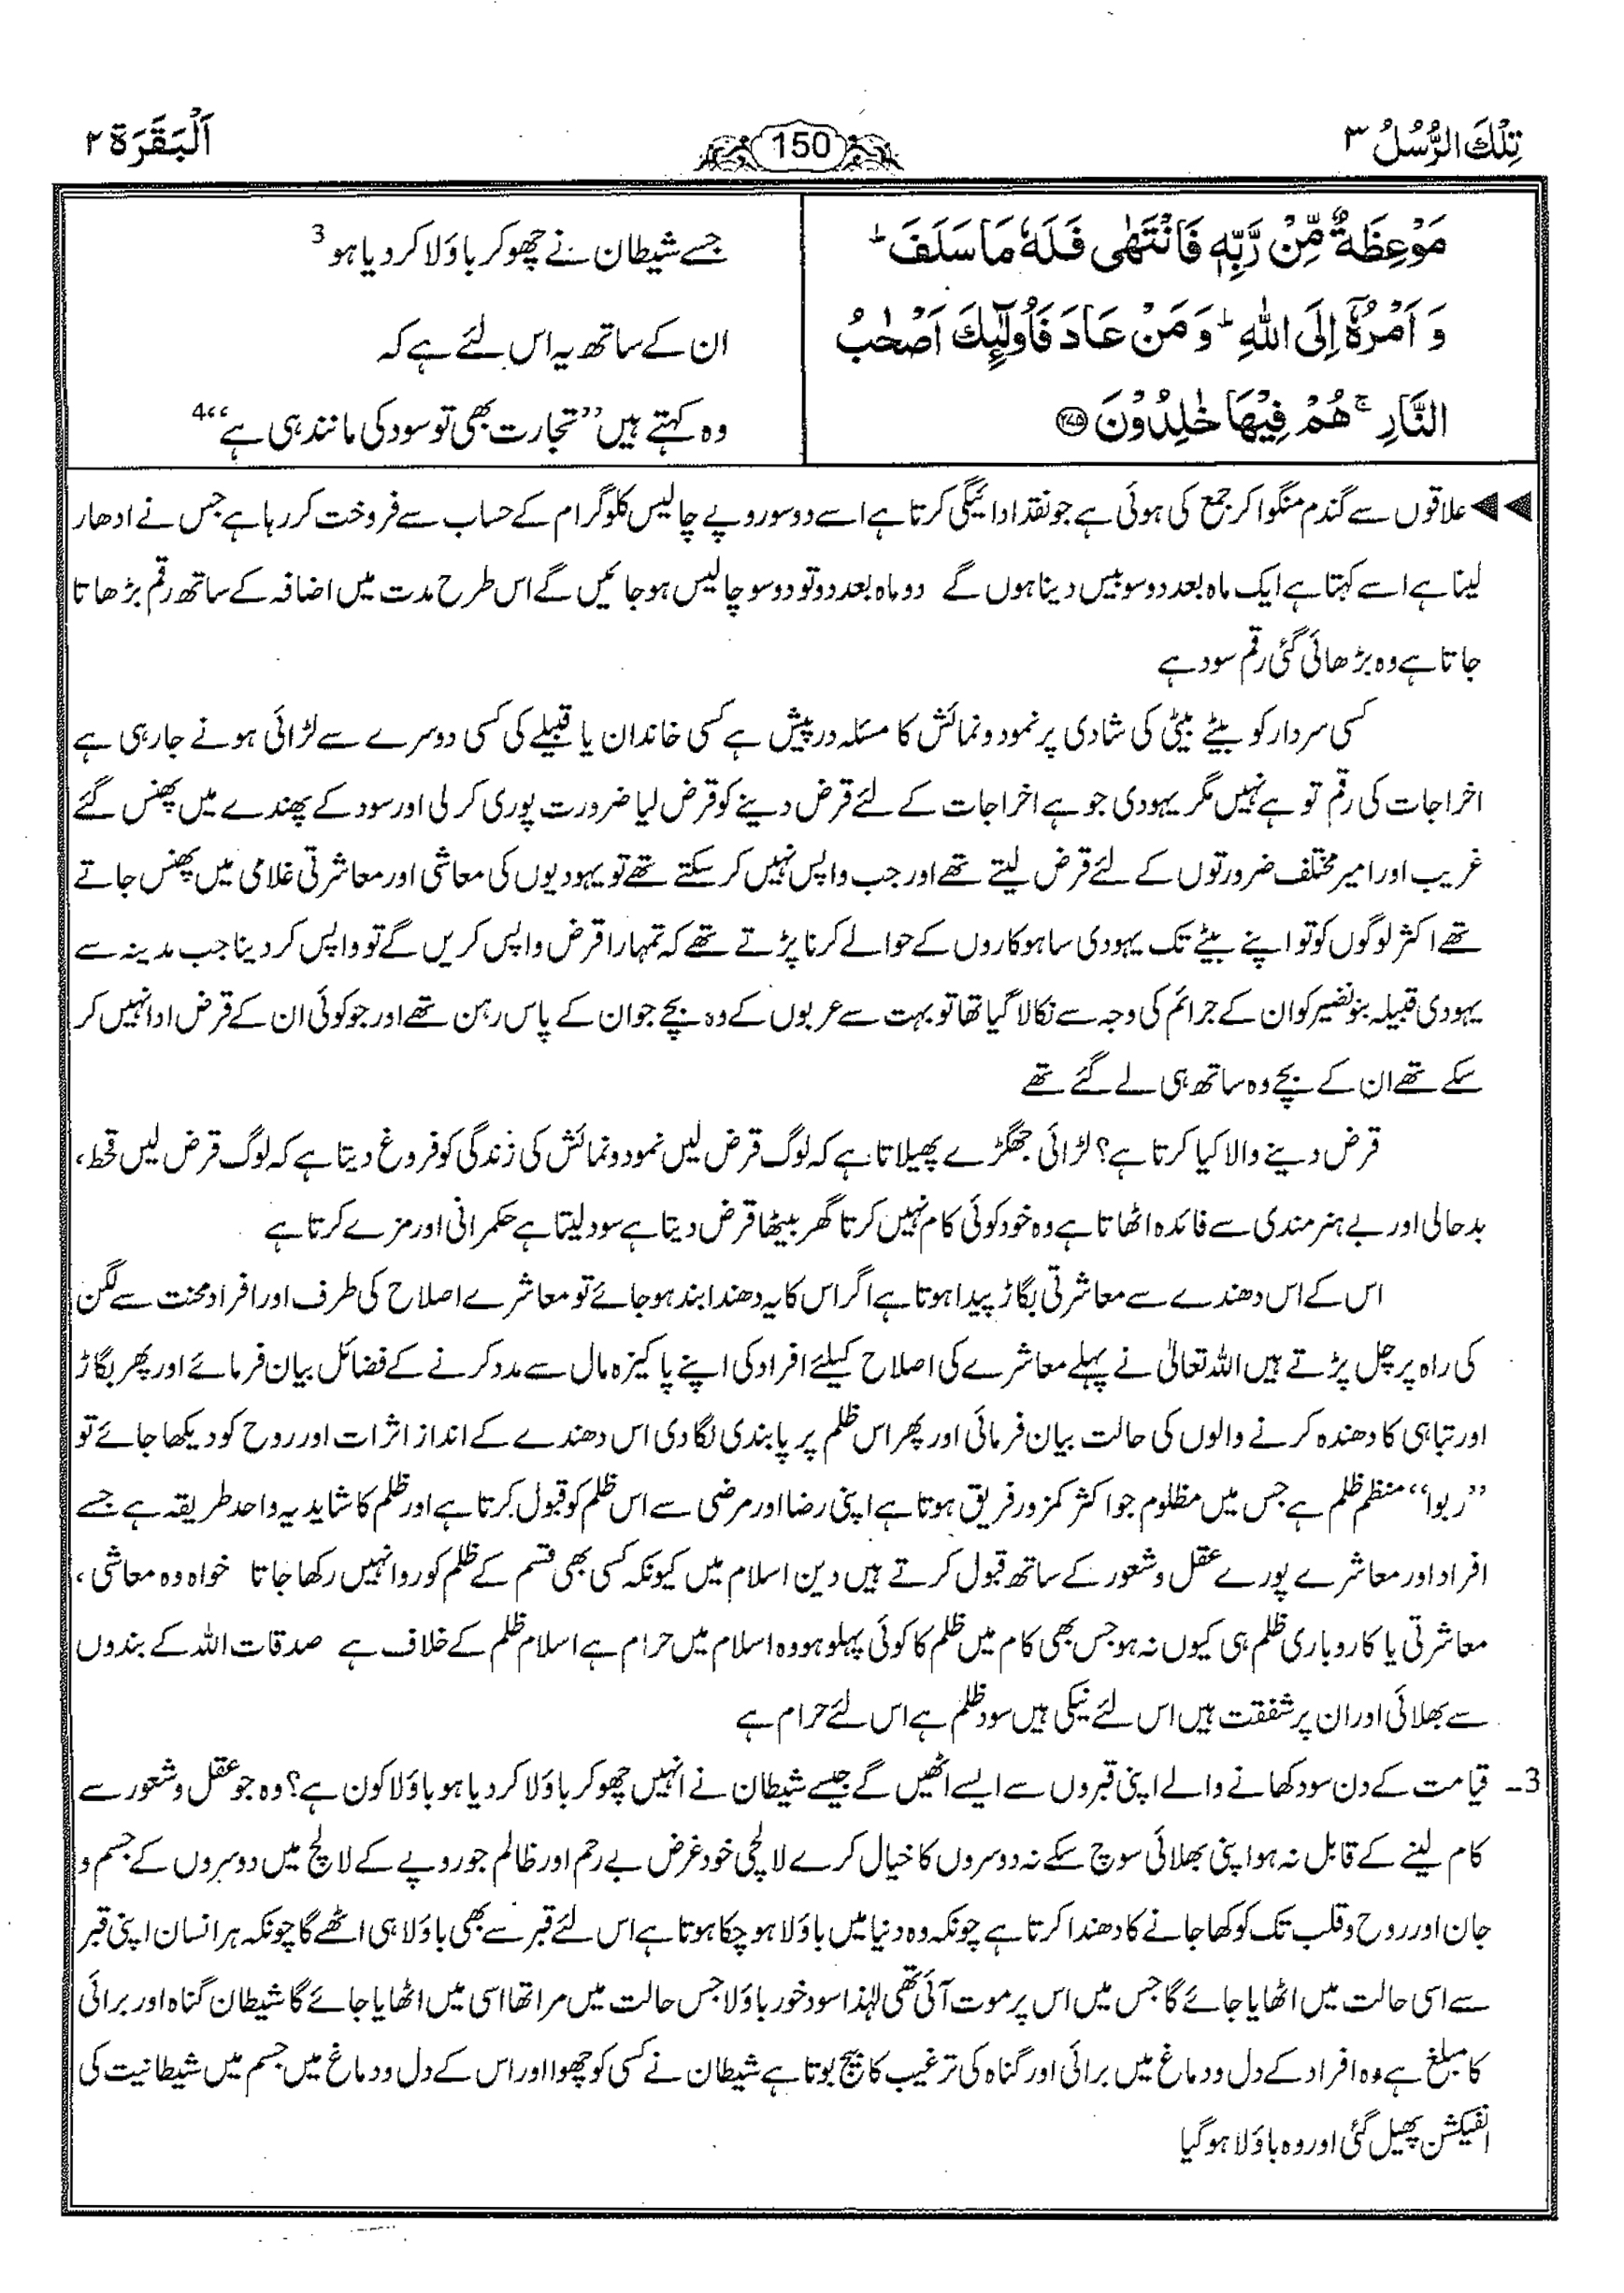 تِلْكَ الرُّسُلُ ۳
150
اَلْبَقَرَة ۲
مَوْعِظَةٌ مِّنْ رَّبِّهٖ فَانْتَهٰى فَلَهٗ مَا سَلَفَ ؕ
وَ اَمْرُهٗۤ اِلَى اللّٰهِ ؕ وَ مَنْ عَادَ فَاُولٰٓئِكَ اَصْحٰبُ
النَّارِ ۚ هُمْ فِيْهَا خٰلِدُوْنَ ﴿۲۷۵﴾
جسے شیطان نے چھو کر باؤلا کر دیا ہو 3
ان کے ساتھ یہ اس لئے ہے کہ
وہ کہتے ہیں ’’تجارت بھی تو سود کی مانند ہی ہے‘‘ 4
◀◀ علاقوں سے گندم منگوا کر جمع کی ہوئی ہے جو نقد ادائیگی کرتا ہے اسے دو سو روپے چالیس کلو گرام کے حساب سے فروخت کر رہا ہے جس نے ادھار
لینا ہے اسے کہتا ہے ایک ماہ بعد دو سو بیس دینا ہوں گے دو ماہ بعد دو تو دو سو چالیس ہو جائیں گے اس طرح مدت میں اضافہ کے ساتھ رقم بڑھاتا
جاتا ہے وہ بڑھائی گئی رقم سود ہے
کسی سردار کو بیٹے بیٹی کی شادی پر نمود و نمائش کا مسئلہ در پیش ہے کسی خاندان یا قبیلے کی کسی دوسرے سے لڑائی ہونے جا رہی ہے
اخراجات کی رقم تو ہے نہیں مگر یہودی جو ہے اخراجات کے لئے قرض دینے کو قرض لیا ضرورت پوری کر لی اور سود کے پھندے میں پھنس گئے
غریب اور امیر مختلف ضرورتوں کے لئے قرض لیتے تھے اور جب واپس نہیں کر سکتے تھے تو یہودیوں کی معاشی اور معاشرتی غلامی میں پھنس جاتے
تھے اکثر لوگوں کو تو اپنے بیٹے تک یہودی ساہوکاروں کے حوالے کرنا پڑتے تھے کہ تمہارا قرض واپس کریں گے تو واپس کر دینا جب مدینہ سے
یہودی قبیلہ بنو نضیر کو ان کے جرائم کی وجہ سے نکالا گیا تھا تو بہت سے عربوں کے وہ بچے جو ان کے پاس رہن تھے اور جو کوئی ان کے قرض ادا نہیں کر
سکے تھے ان کے بچے وہ ساتھ ہی لے گئے تھے
قرض دینے والا کیا کرتا ہے؟ لڑائی جھگڑے پھیلاتا ہے کہ لوگ قرض لیں نمود و نمائش کی زندگی کو فروغ دیتا ہے کہ لوگ قرض لیں قحط،
بدحالی اور بے ہنر مندی سے فائدہ اٹھاتا ہے وہ خود کوئی کام نہیں کرتا گھر بیٹھا قرض دیتا ہے سود لیتا ہے حکمرانی اور مزے کرتا ہے
اس کے اس دھندے سے معاشرتی بگاڑ پیدا ہوتا ہے اگر اس کا یہ دھندا بند ہو جائے تو معاشرے اصلاح کی طرف اور افراد محنت سے لگن
کی راہ پر چل پڑتے ہیں اللہ تعالیٰ نے پہلے معاشرے کی اصلاح کیلئے افراد کی اپنے پاکیزہ مال سے مدد کرنے کے فضائل بیان فرمائے اور پھر بگاڑ
اور تباہی کا دھندہ کرنے والوں کی حالت بیان فرمائی اور پھر اس ظلم پر پابندی لگا دی اس دھندے کے انداز اثرات اور روح کو دیکھا جائے تو
’’ربوا‘‘ منظم ظلم ہے جس میں مظلوم جو اکثر کمزور فریق ہوتا ہے اپنی رضا اور مرضی سے اس ظلم کو قبول کرتا ہے اور ظلم کا شاید یہ واحد طریقہ ہے جسے
افراد اور معاشرے پورے عقل و شعور کے ساتھ قبول کرتے ہیں دین اسلام میں کیونکہ کسی بھی قسم کے ظلم کو روا نہیں رکھا جاتا خواہ وہ معاشی،
معاشرتی یا کاروباری ظلم ہی کیوں نہ ہو جس بھی کام میں ظلم کا کوئی پہلو ہو وہ اسلام میں حرام ہے اسلام ظلم کے خلاف ہے صدقات اللہ کے بندوں
سے بھلائی اور ان پر شفقت ہیں اس لئے نیکی ہیں سود ظلم ہے اس لئے حرام ہے
3۔ قیامت کے دن سود کھانے والے اپنی قبروں سے ایسے اٹھیں گے جیسے شیطان نے انہیں چھو کر باؤلا کر دیا ہو باؤلا کون ہے؟ وہ جو عقل و شعور سے
کام لینے کے قابل نہ ہو اپنی بھلائی سوچ سکے نہ دوسروں کا خیال کرے لالچی خود غرض بے رحم اور ظالم جو روپے کے لالچ میں دوسروں کے جسم و
جان اور روح و قلب تک کو کھا جانے کا دھندا کرتا ہے چونکہ وہ دنیا میں باؤلا ہو چکا ہوتا ہے اس لئے قبر سے بھی باؤلا ہی اٹھے گا چونکہ ہر انسان اپنی قبر
سے اسی حالت میں اٹھایا جائے گا جس میں اس پر موت آئی تھی لہذا سود خور باؤلا جس حالت میں مرا تھا اسی میں اٹھایا جائے گا شیطان گناہ اور برائی
کا مبلغ ہے وہ افراد کے دل و دماغ میں برائی اور گناہ کی ترغیب کا بیج بوتا ہے شیطان نے کسی کو چھوا اور اس کے دل و دماغ میں جسم میں شیطانیت کی
انفیکشن پھیل گئی اور وہ باؤلا ہو گیا